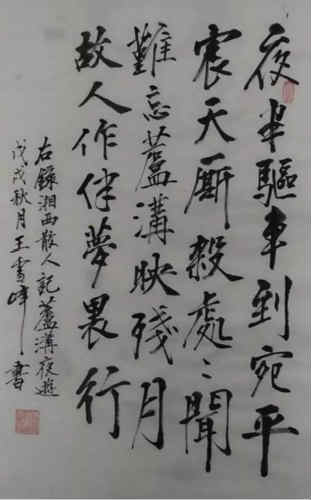 夜半驅車到宛平
震天廝殺處〻聞
難忘蘆溝映殘月
故人作伴夢畏行
右錄湘西散人記蘆溝夜遊
戊戌秋月王雪峰書